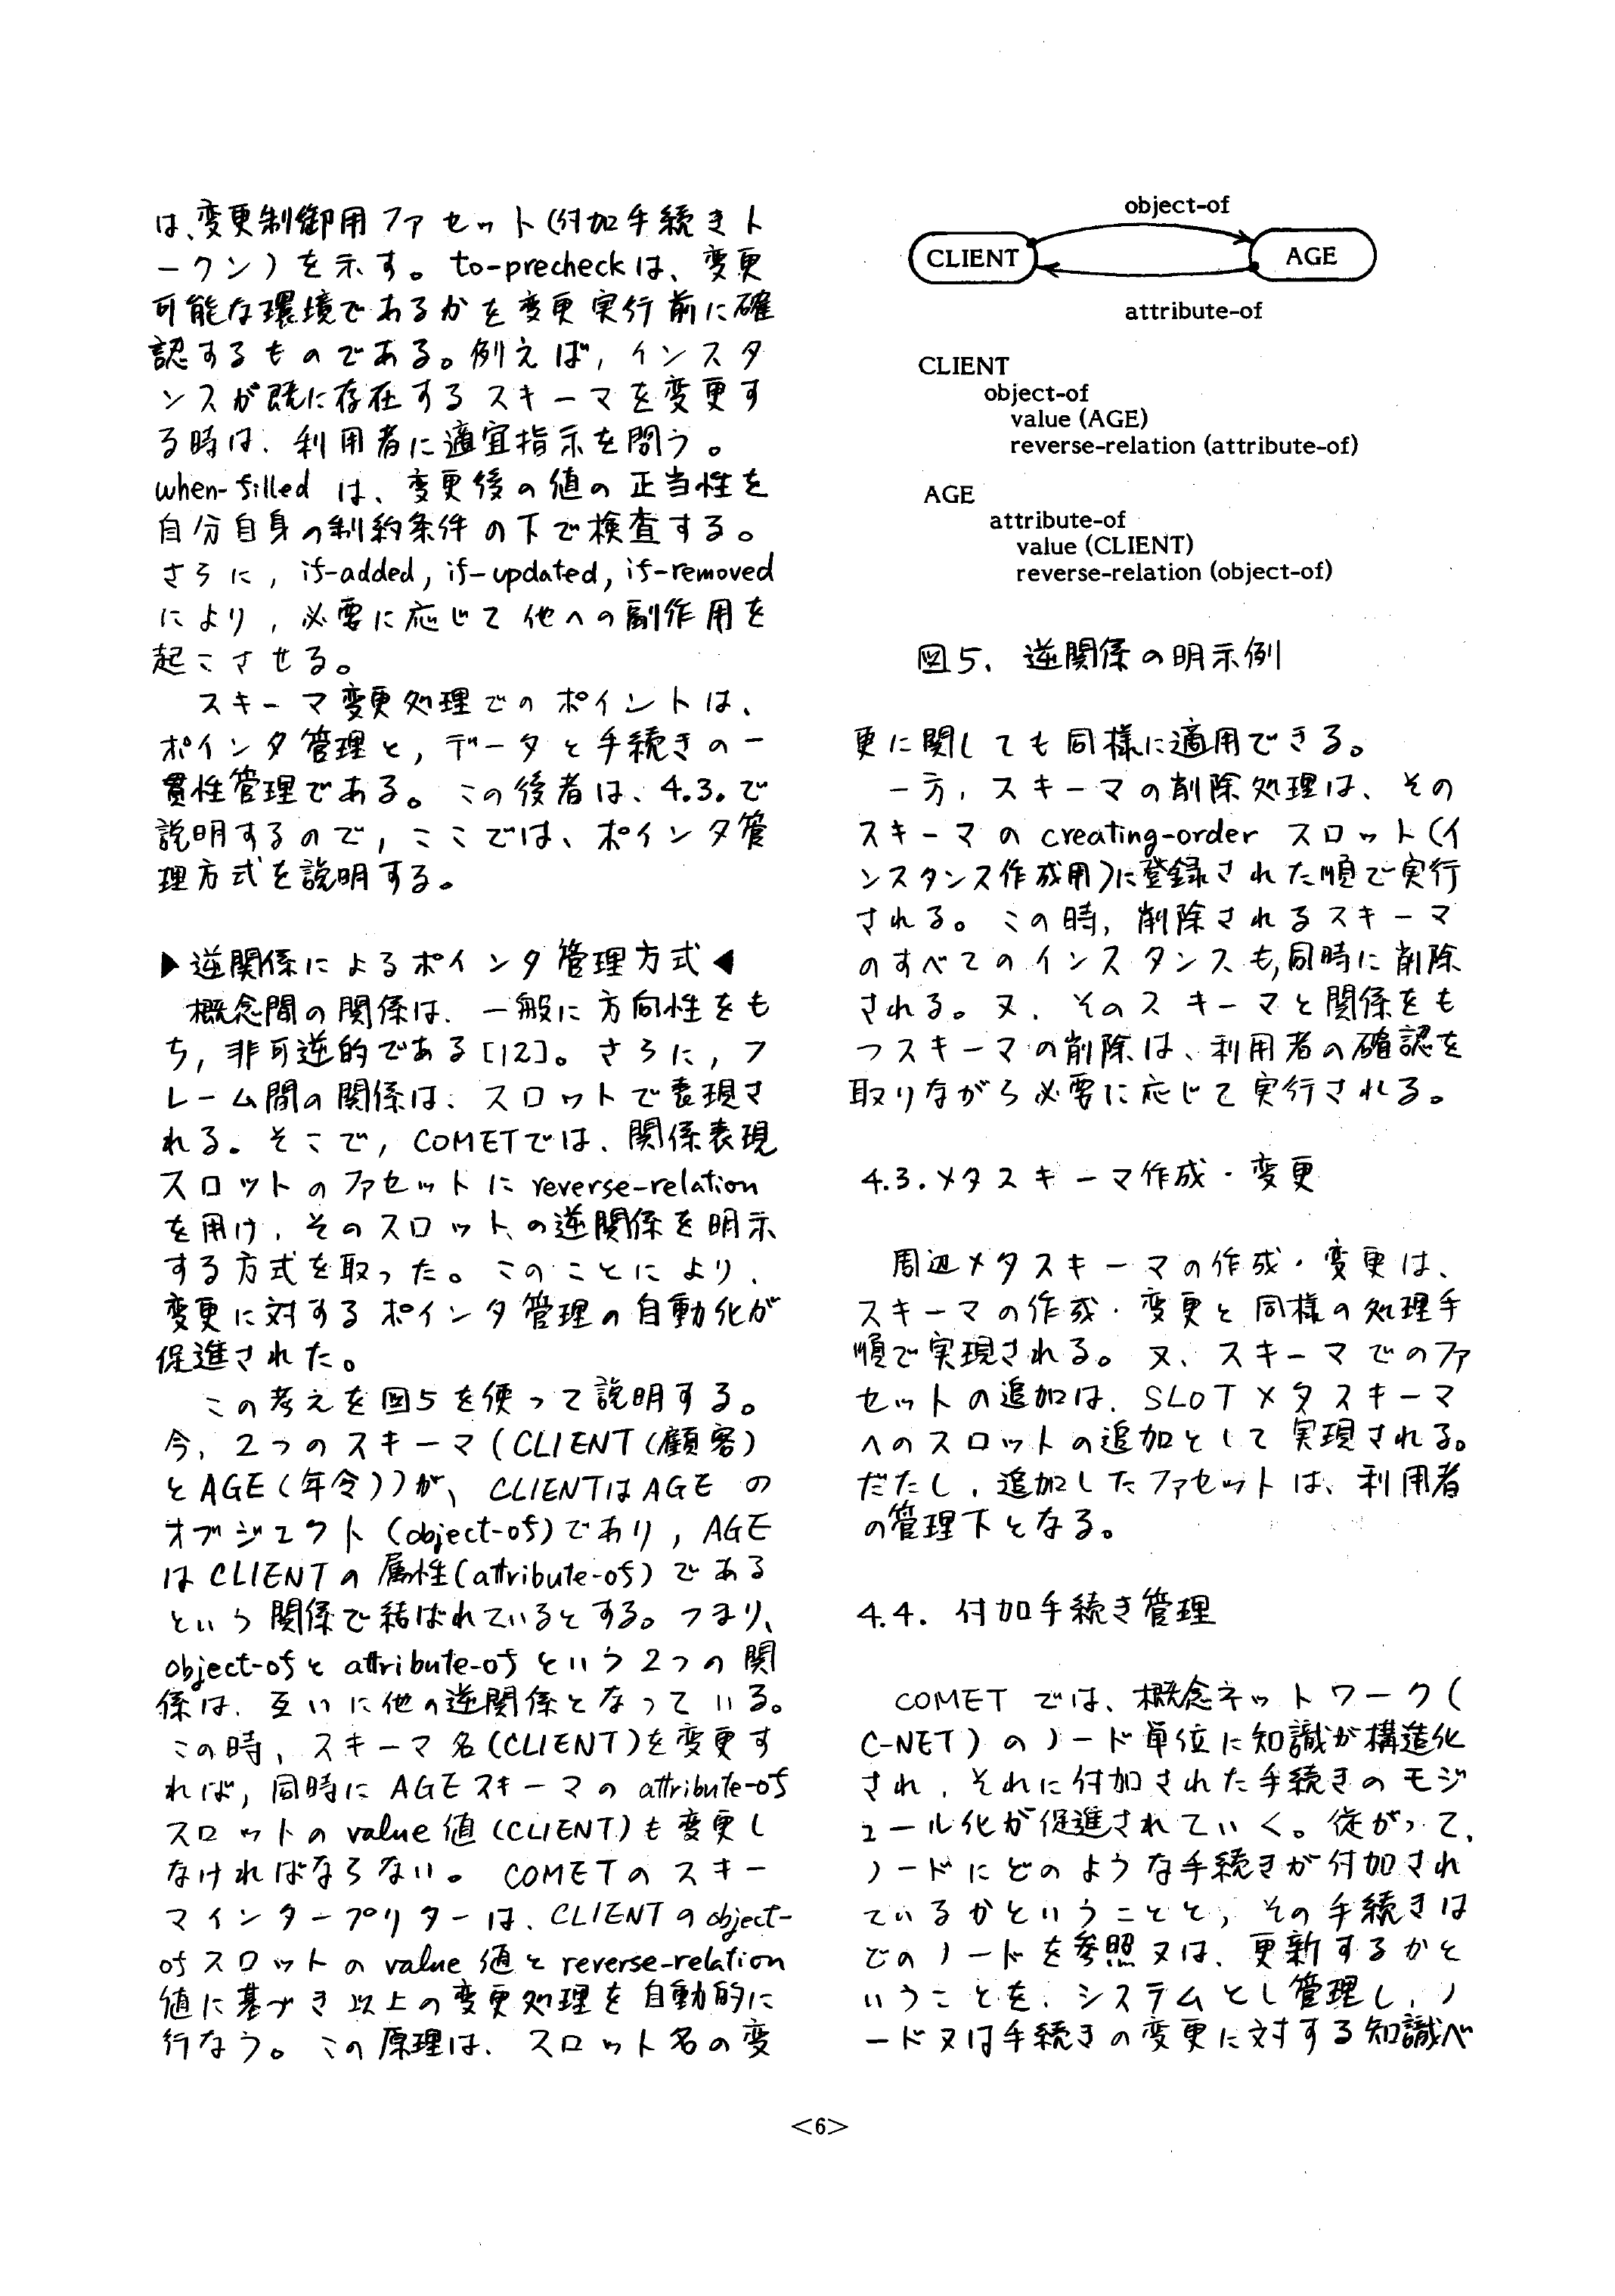 は、変更制御用ファセット(付加手続きト
ークン)を示す。to-precheckは、変更
可能な環境であるかを変更実行前に確
認するものである。例えば,インスタ
ンスが既に存在するスキーマを変更す
る時は、利用者に適宜指示を問う。
when-filled は、変更後の値の正当性を
自分自身の制約条件の下で検査する。
さらに, if-added, if-updated, if-removed
により,必要に応じて他への副作用を
起こさせる。
スキーマ変更処理でのポイントは、
ポインタ管理と,データと手続きの一
貫性管理である。この後者は、4.3.で
説明するので,ここでは、ポインタ管
理方式を説明する。
▶逆関係によるポインタ管理方式◀
概念間の関係は、一般に方向性をも
ち,非可逆的である[12]。さらに,フ
レーム間の関係は、スロットで表現さ
れる。そこで,COMETでは、関係表現
スロットのファセットに reverse-relation
を用け,そのスロットの逆関係を明示
する方式を取った。このことにより、
変更に対するポインタ管理の自動化が
促進された。
この考えを図5を使って説明する。
今,2つのスキーマ(CLIENT(顧客)
とAGE(年令))が、CLIENTはAGE の
オブジェクト(object-of)であり,AGE
は CLIENTの属性(attribute-of)である
という関係で結ばれているとする。つまり、
object-ofと attribute-of という2つの関
係は、互いに他の逆関係となっている。
この時,スキーマ名(CLIENT)を変更す
れば,同時に AGEスキーマの attribute-of
スロットの value 値(CLIENT)も変更し
なければならない。COMETのスキー
マインタープリターは、CLIENTのobject-
ofスロットの value 値と reverse-relation
値に基づき以上の変更処理を自動的に
行なう。この原理は、スロット名の変
object-of
CLIENT
AGE
attribute-of
CLIENT
object-of
value (AGE)
reverse-relation (attribute-of)
AGE
attribute-of
value (CLIENT)
reverse-relation (object-of)
図5. 逆関係の明示例
更に関しても同様に適用できる。
一方,スキーマの削除処理は、その
スキーマの creating-order スロット(イ
ンスタンス作成用)に登録された順で実行
される。この時,削除されるスキーマ
のすべてのインスタンスも,同時に削除
される。又、そのスキーマと関係をも
つスキーマの削除は、利用者の確認を
取りながら必要に応じて実行される。
4.3.メタスキーマ作成・変更
周辺メタスキーマの作成・変更は、
スキーマの作成・変更と同様の処理手
順で実現される。又、スキーマでのファ
セットの追加は、SLOTメタスキーマ
へのスロットの追加として実現される。
だたし,追加したファセットは、利用者
の管理下となる。
4.4. 付加手続き管理
COMET では、概念ネットワーク(
C-NET)のノード単位に知識が構造化
され,それに付加された手続きのモジ
ュール化が促進されていく。従がって、
ノードにどのような手続きが付加され
ているかということと,その手続きは
どのノードを参照又は、更新するかと
いうことを、システムとし管理し,ノ
ード又は手続きの変更に対する知識ベ
<6>